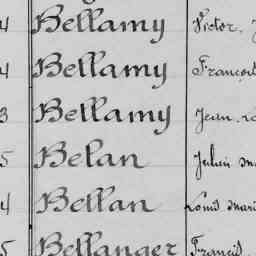 4 Bellamy Victor
4 Bellamy François
3 Bellamy Jean
5 Belan Julien
4 Bellan Louis Mari
5 Bellanger Francis